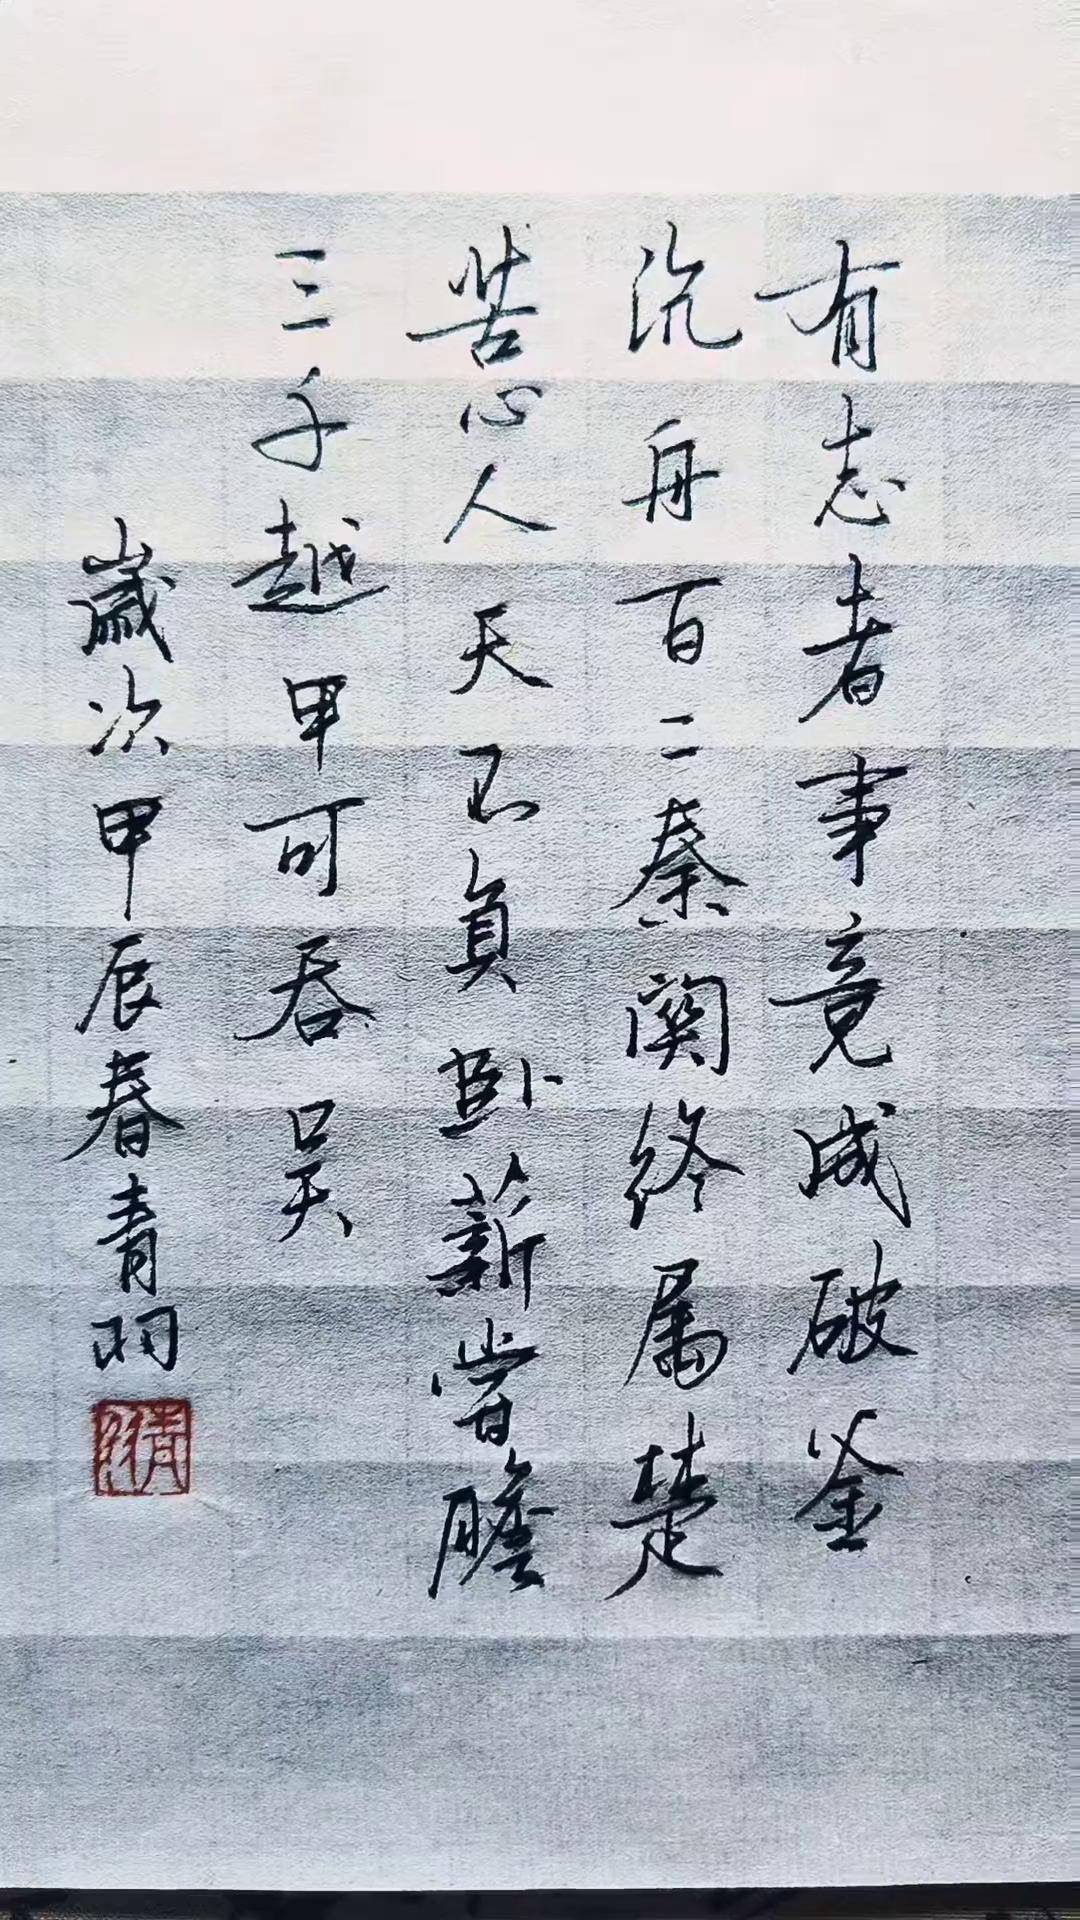 有志者事竟成破釜
沉舟百二秦関终属楚
苦心人天不負卧薪嘗膽
三千越甲可吞吴
歲次甲辰春青羽